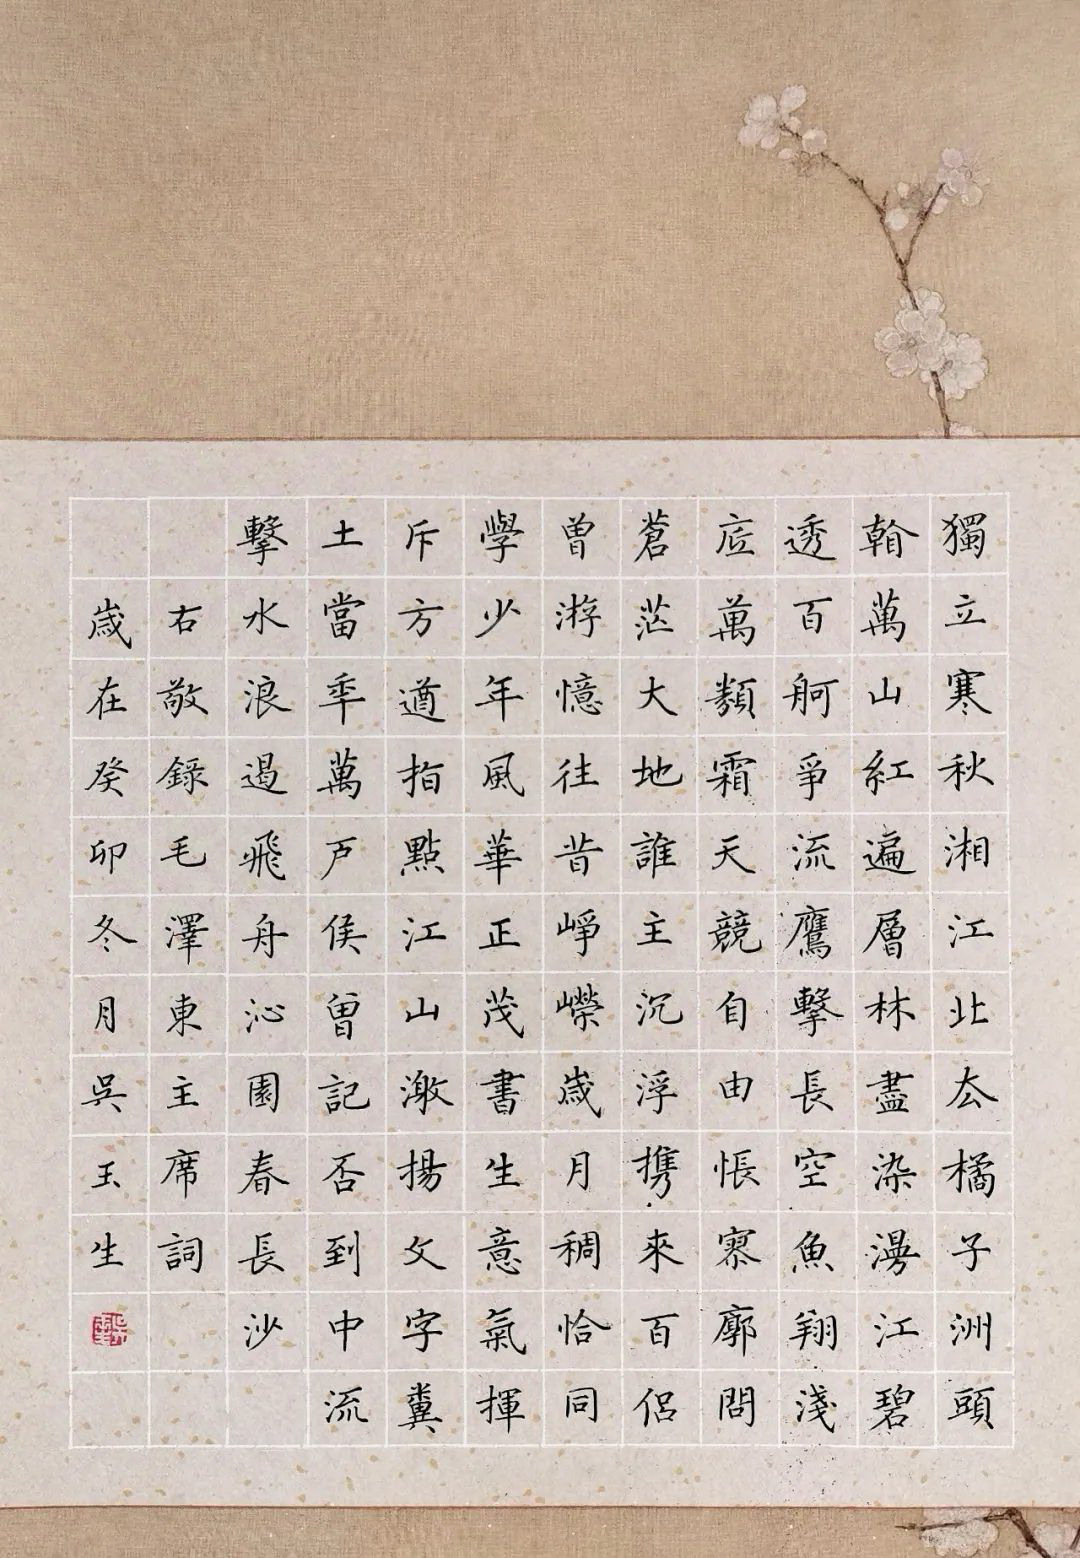 獨立寒秋湘江北厺橘子洲頭
看萬山紅遍層林盡染漫江碧
透百舸爭流鷹擊長空魚翔淺
底萬類霜天競自由悵寥廓問
蒼茫大地誰主沉浮携來百侶
曾游憶往昔崢嶸歲月稠恰同
學少年風華正茂書生意氣揮
斥方遒指點江山激揚文字糞
土當年萬戶侯曾記否到中流
擊水浪遏飛舟沁園春長沙
右敬録毛澤東主席詞
歲在癸卯冬月吳玉生